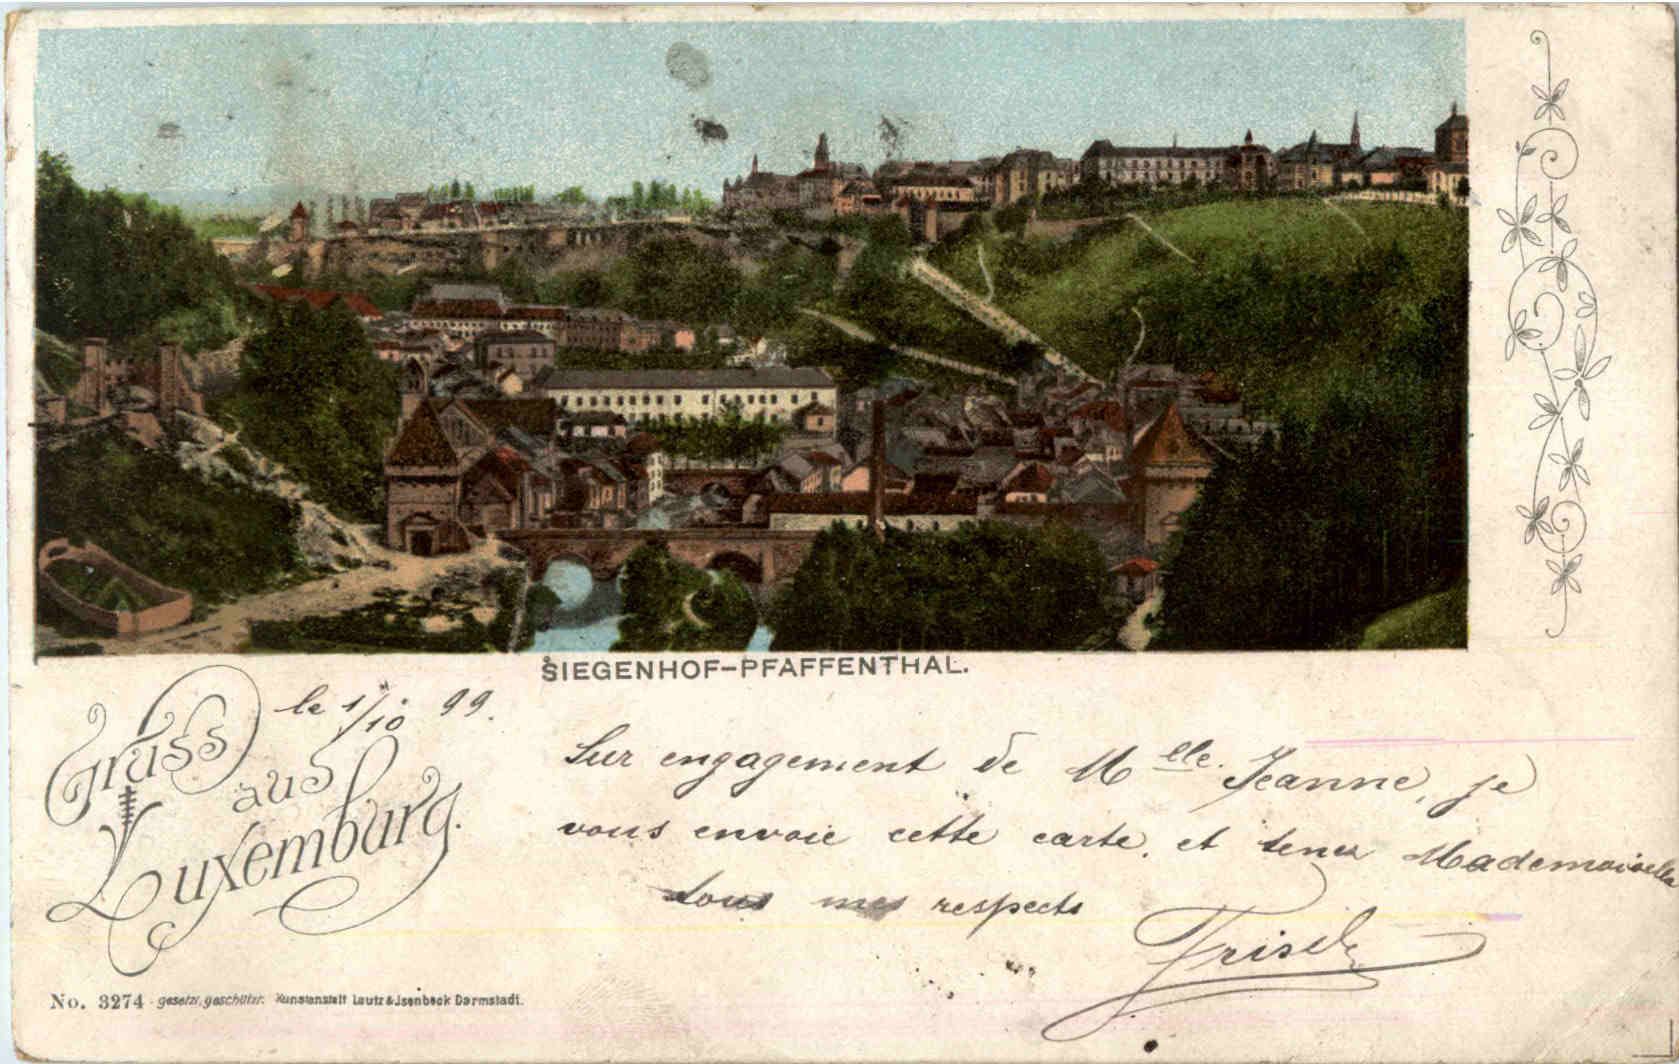 SIEGENHOF-PFAFFENTHAL.
Gruss
aus
Luxemburg.
le 1/10 99.
Sur engagement de Mlle. Jeanne, je
vous envoie cette carte. et tenez Mademoiselle
tous mes respects
Frisch
No. 3274 gesetzl. geschützt. Kunstanstalt Lautz & Jsenbeck Darmstadt.